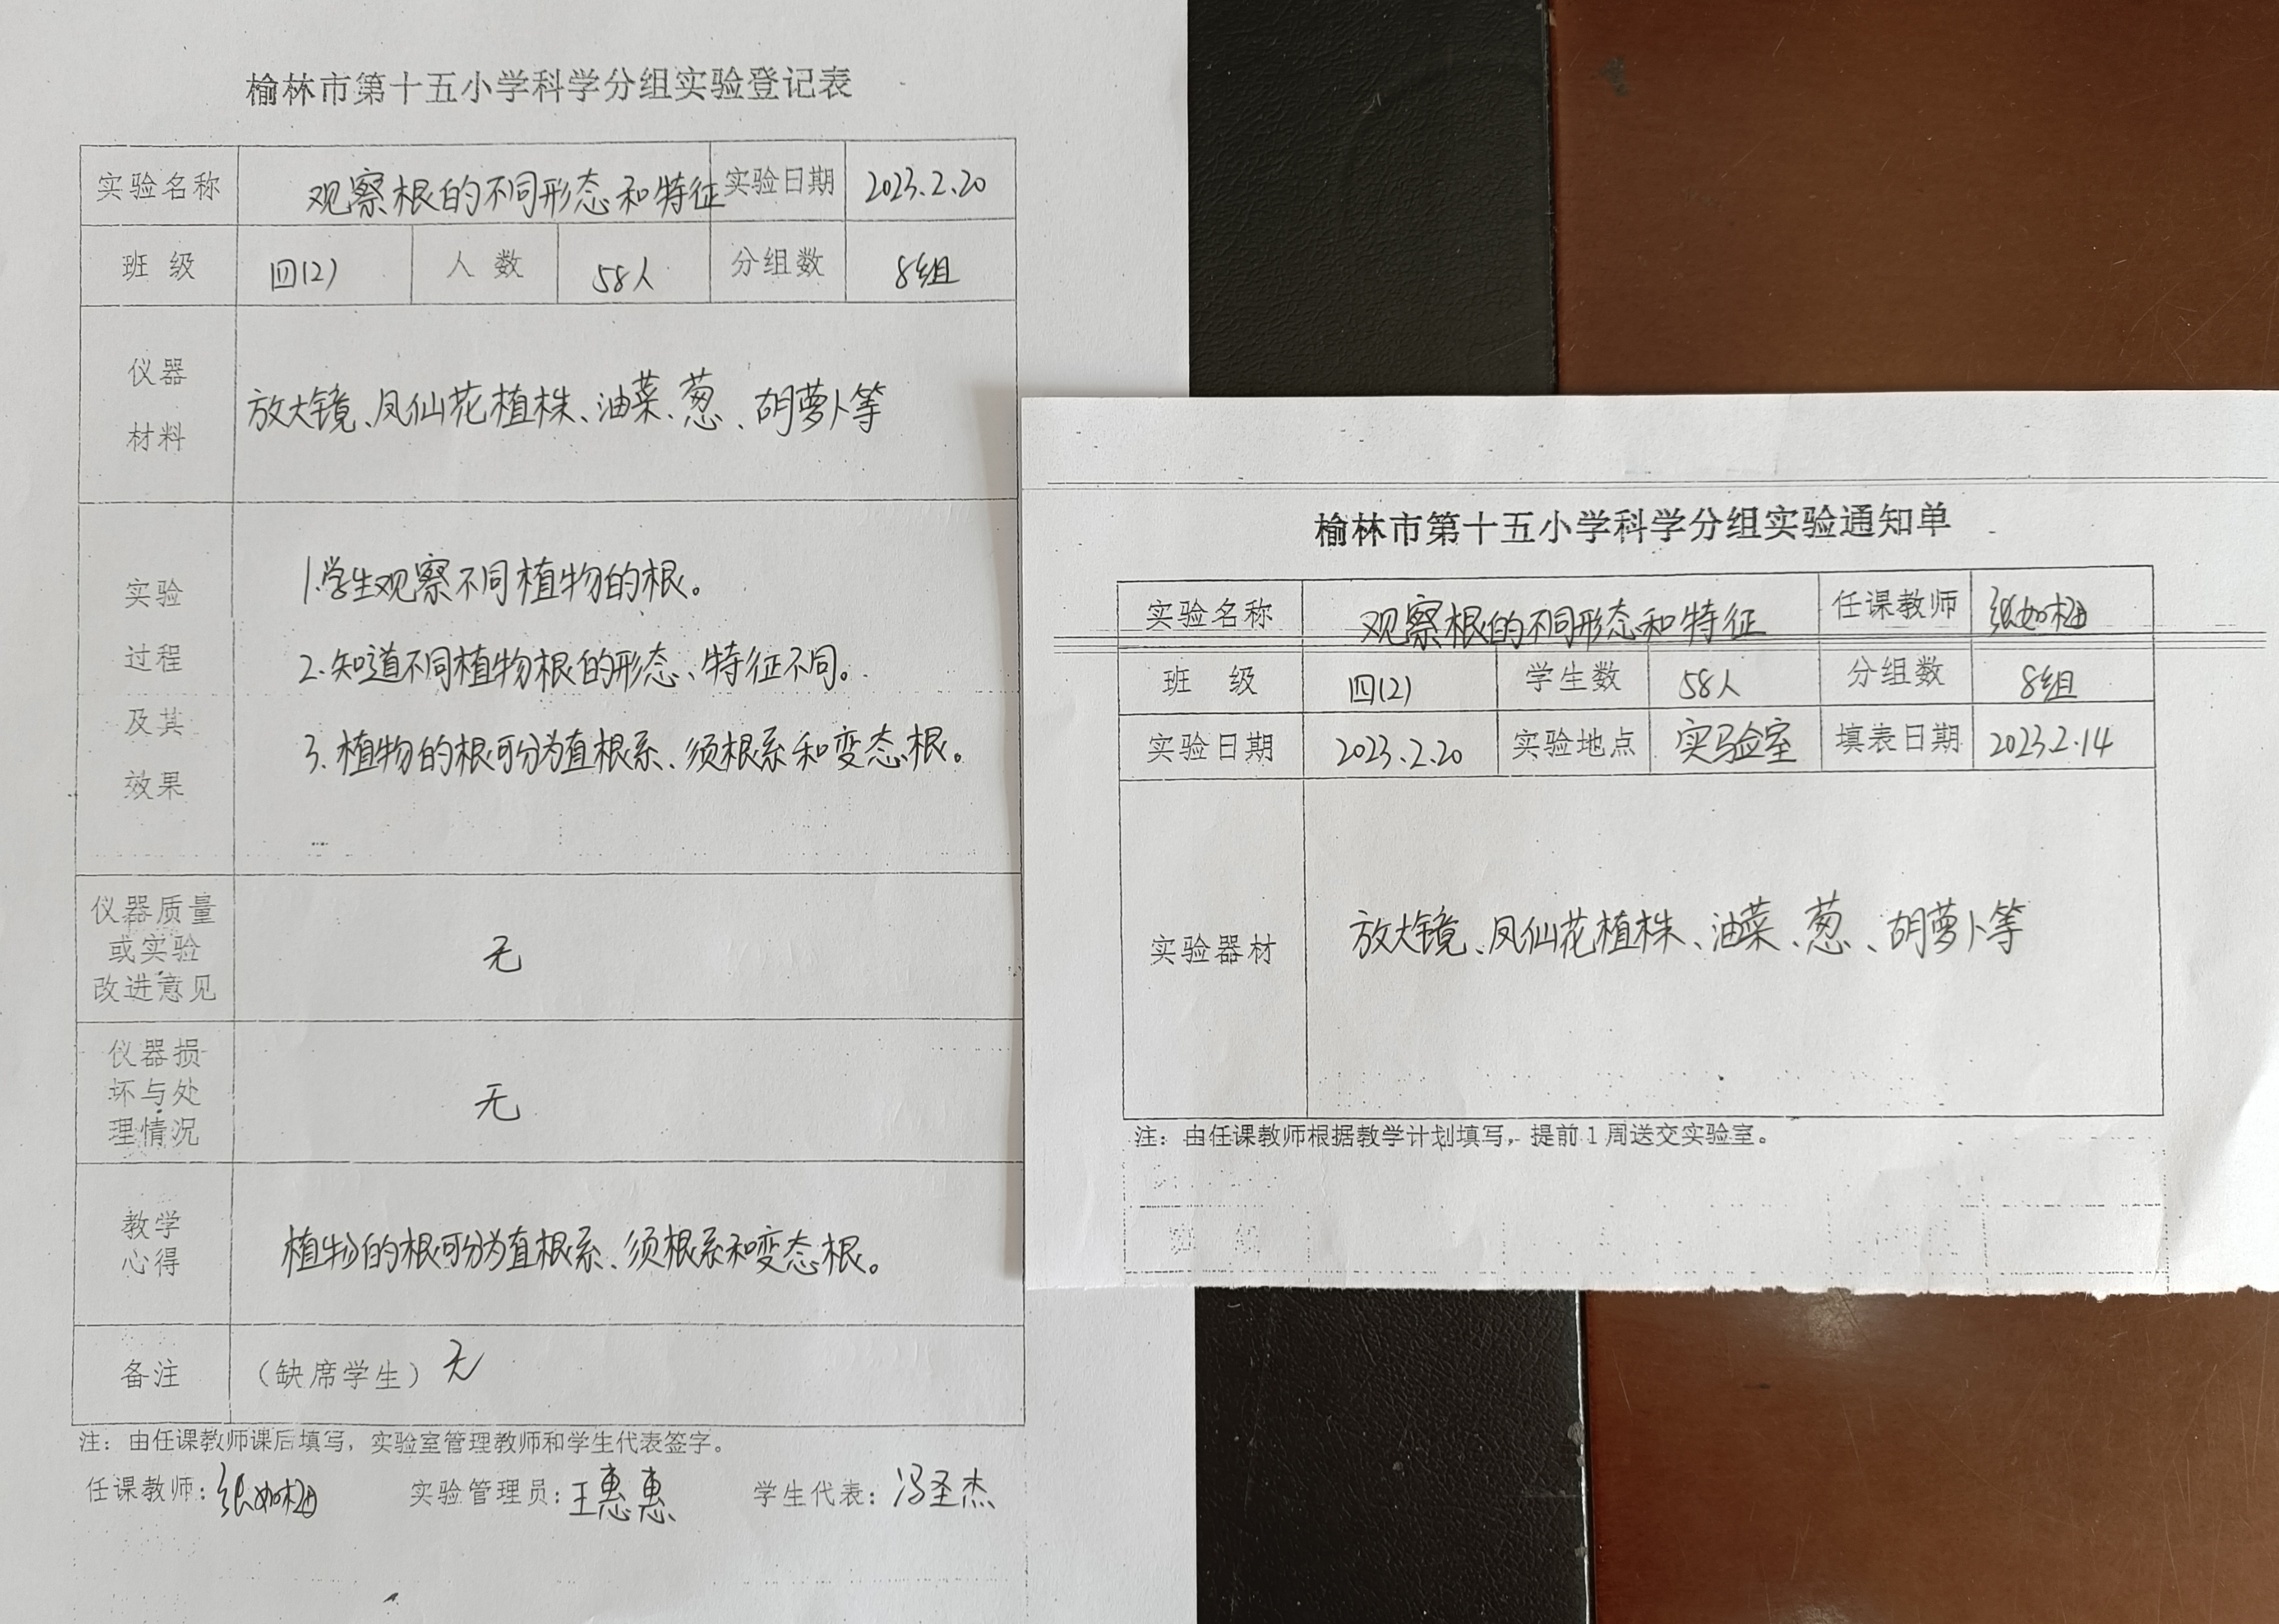 榆林市第十五小学科学分组实验登记表
实验名称 观察根的不同形态和特征 实验日期 2023.2.20
班级 四(2) 人数 58人 分组数 8组
仪器
材料
放大镜、凤仙花植株、油菜、葱、胡萝卜等
实验
过程
及其
效果
1.学生观察不同植物的根。
2.知道不同植物根的形态、特征不同。
3.植物的根可分为直根系、须根系和变态根。
仪器质量
或实验
改进意见
无
仪器损
坏与处
理情况
无
教学
心得
植物的根可分为直根系、须根系和变态根。
备注 (缺席学生) 无
注：由任课教师课后填写，实验室管理教师和学生代表签字。
任课教师：张如梅 实验管理员：王惠惠 学生代表：冯圣杰
榆林市第十五小学科学分组实验通知单
实验名称 观察根的不同形态和特征 任课教师 张如梅
班级 四(2) 学生数 58人 分组数 8组
实验日期 2023.2.20 实验地点 实验室 填表日期 2023.2.14
实验器材 放大镜、凤仙花植株、油菜、葱、胡萝卜等
注：由任课教师根据教学计划填写，提前1周送交实验室。
班 级